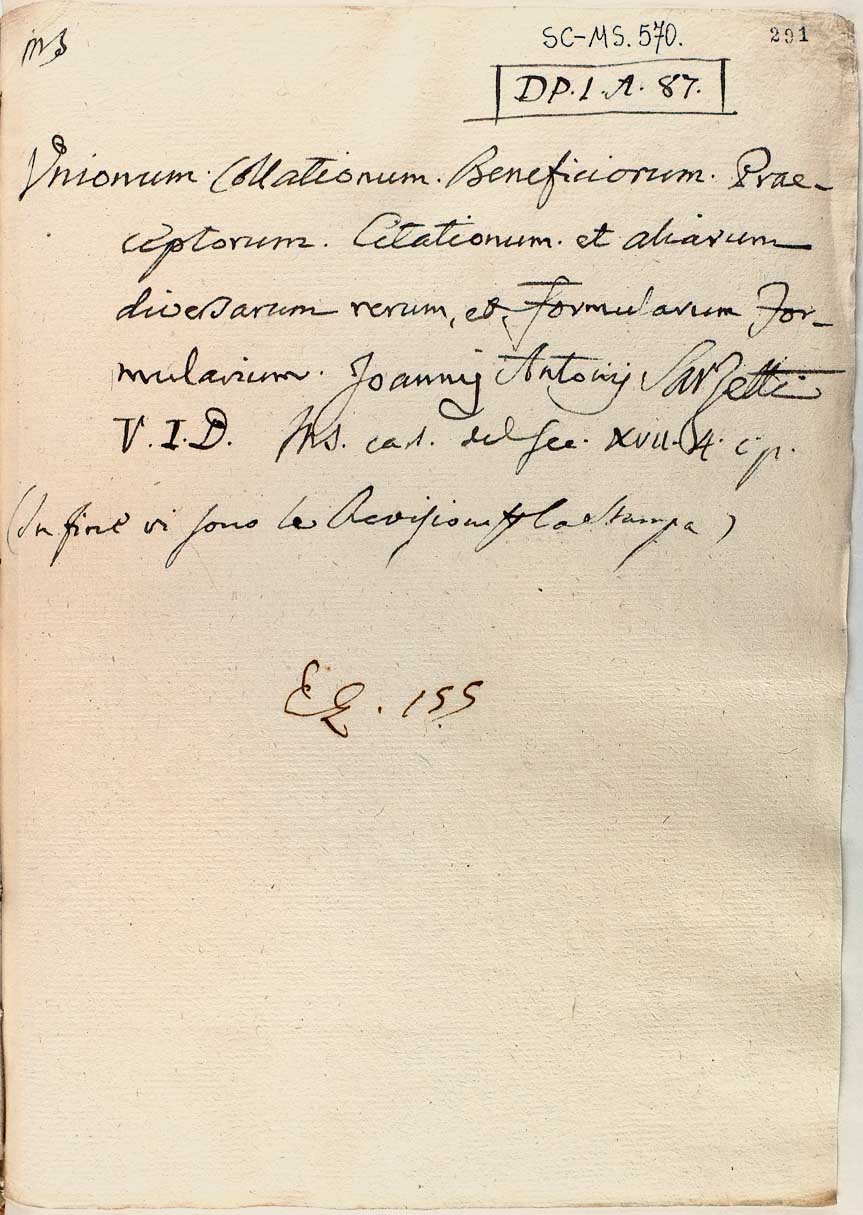 ms
SC-MS. 570.
291
DP. I. A. 87.
Unionum. Collationum. Beneficiorum. Prae-
ceptorum. Citationum. et aliarum
diversarum rerum, et Formularum For-
mularium. Joannij Antonij Sarzetti
V. I. D. Ms. cart. del sec. XVII. 4. c. p.
(In fine vi sono le Revisioni p la stampa)
155